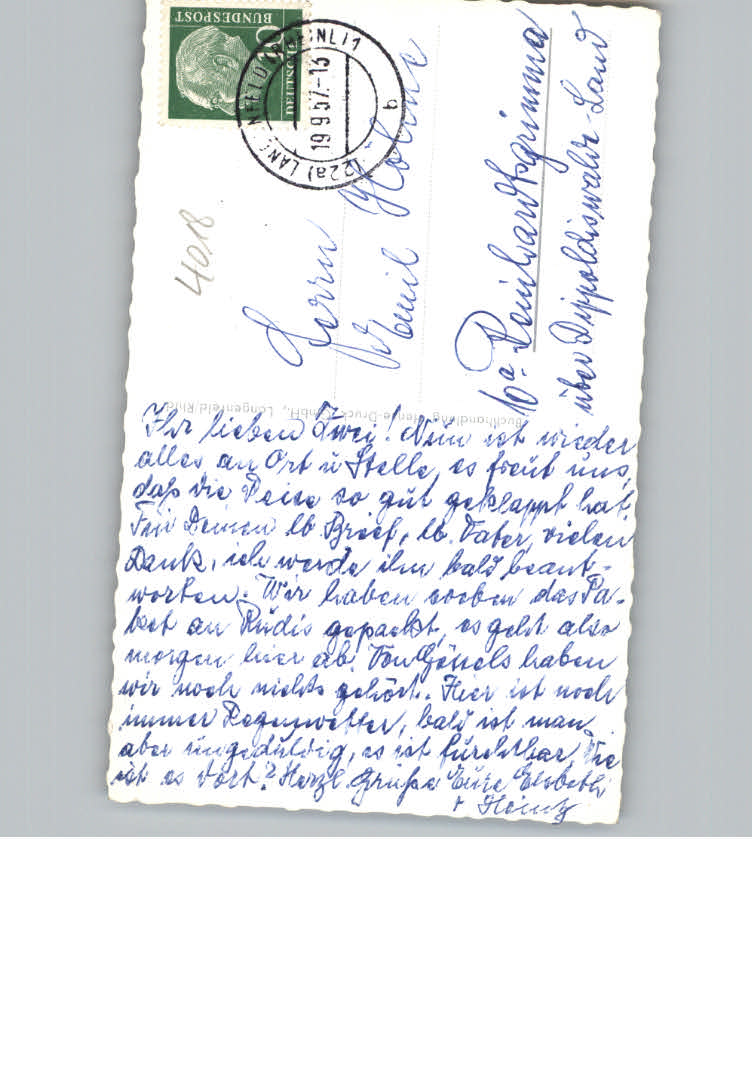 DEUTSCHE
BUNDESPOST
(22a) LANGENFELD (RHEINL) 1
19.9.57.-13
b
4018
Herrn
Emil
10a Reinhardtsgrimma
über Dippoldiswalde-Land
Buchhandlung Druck GmbH., Langenfeld/Rhld.
Ihr lieben Zwei! Nun ist wieder
alles an Ort u Stelle, es freut uns,
daß die Reise so gut geklappt hat.
Für Deinen lb Brief, lb. Vater, vielen
Dank, ich werde ihn bald beant-
worten. Wir haben soeben das Pa-
ket an Rudis gepackt, es geht also
morgen hier ab. Von haben
wir noch nichts gehört. Hier ist noch
immer Regenwetter, bald ist man
aber ungeduldig, es ist furchtbar. Wie
ist es dort? Herzl. Grüße Eure Elsbeth
+ Heinz